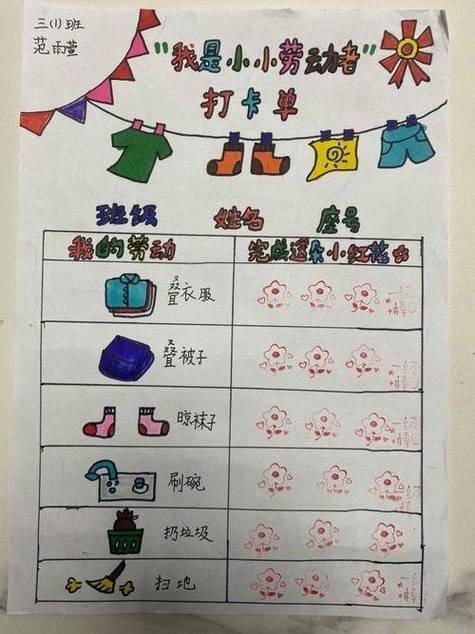 三(1)班
范雨萱
"我是小小劳动者"
打卡单
班级 姓名 座号
我的劳动 完成送朵小红花
叠衣服
叠被子
晾袜子
刷碗
扔垃圾
扫地